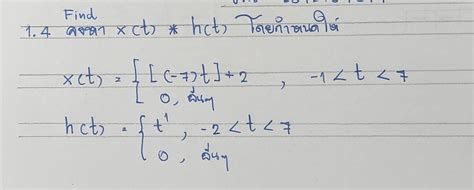 Find
1.4 จงหา x(t) * h(t) โดยกำหนดให้
x(t) = { [(-7)t]+2 , -1 < t < 7
0, อื่นๆ
h(t) = { t¹ , -2 < t < 7
0, อื่นๆ